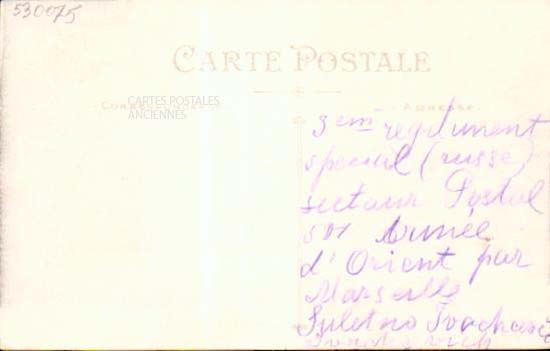 530075
CARTE POSTALE
CORRESPONDANCE
ADRESSE
CARTES POSTALES
ANCIENNES
3em regiment
special (russe)
secteur Postal
501 Armée
d'Orient par
Marseille